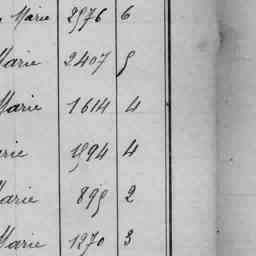 Marie 2976 6
Marie 2407 5
Marie 1614 4
Marie 1594 4
Marie 895 2
Marie 1270 3